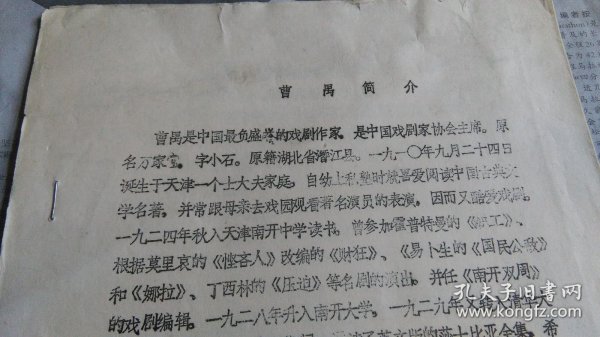 曹禺简介
曹禺是中国最负盛誉的戏剧作家。是中国戏剧家协会主席。原
名万家宝。字小石。原籍湖北省潜江县。一九一〇年九月二十四日
诞生于天津一个士大夫家庭。自幼上私塾时就喜爱阅读中国古典文
学名著，并常跟母亲去戏园观看著名演员的表演，因而又酷爱戏剧。
一九二四年秋入天津南开中学读书。曾参加霍普特曼的《织工》、
根据莫里哀的《悭吝人》改编的《财狂》、《易卜生的《国民公敌》
和《娜拉》、丁西林的《压迫》等名剧的演出，并任《南开双周》
的戏剧编辑。一九二八年升入南开大学。一九二九年又转入清华大
莎士比亚全集。希
孔夫子旧书网